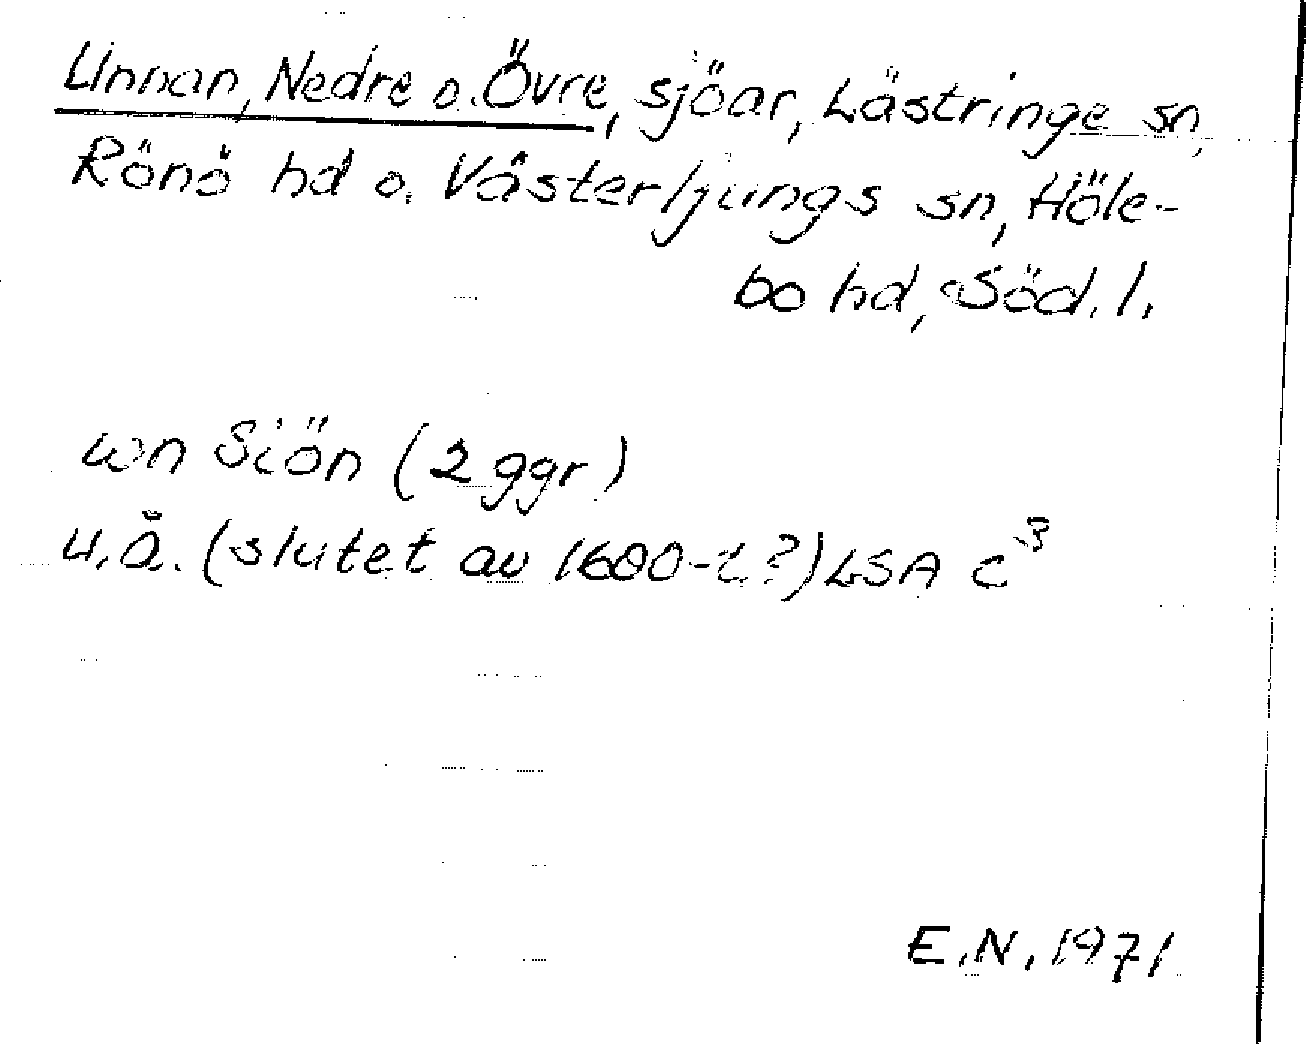 Unnan, Nedre o. Övre, sjöar, Lästringe sn,
Rönö hd o. Västerljungs sn, Höle-
bo hd, Söd. l.
wn Siön (2 ggr)
u.å. (slutet av 1600-t?) LSA C³
E.N. 1971